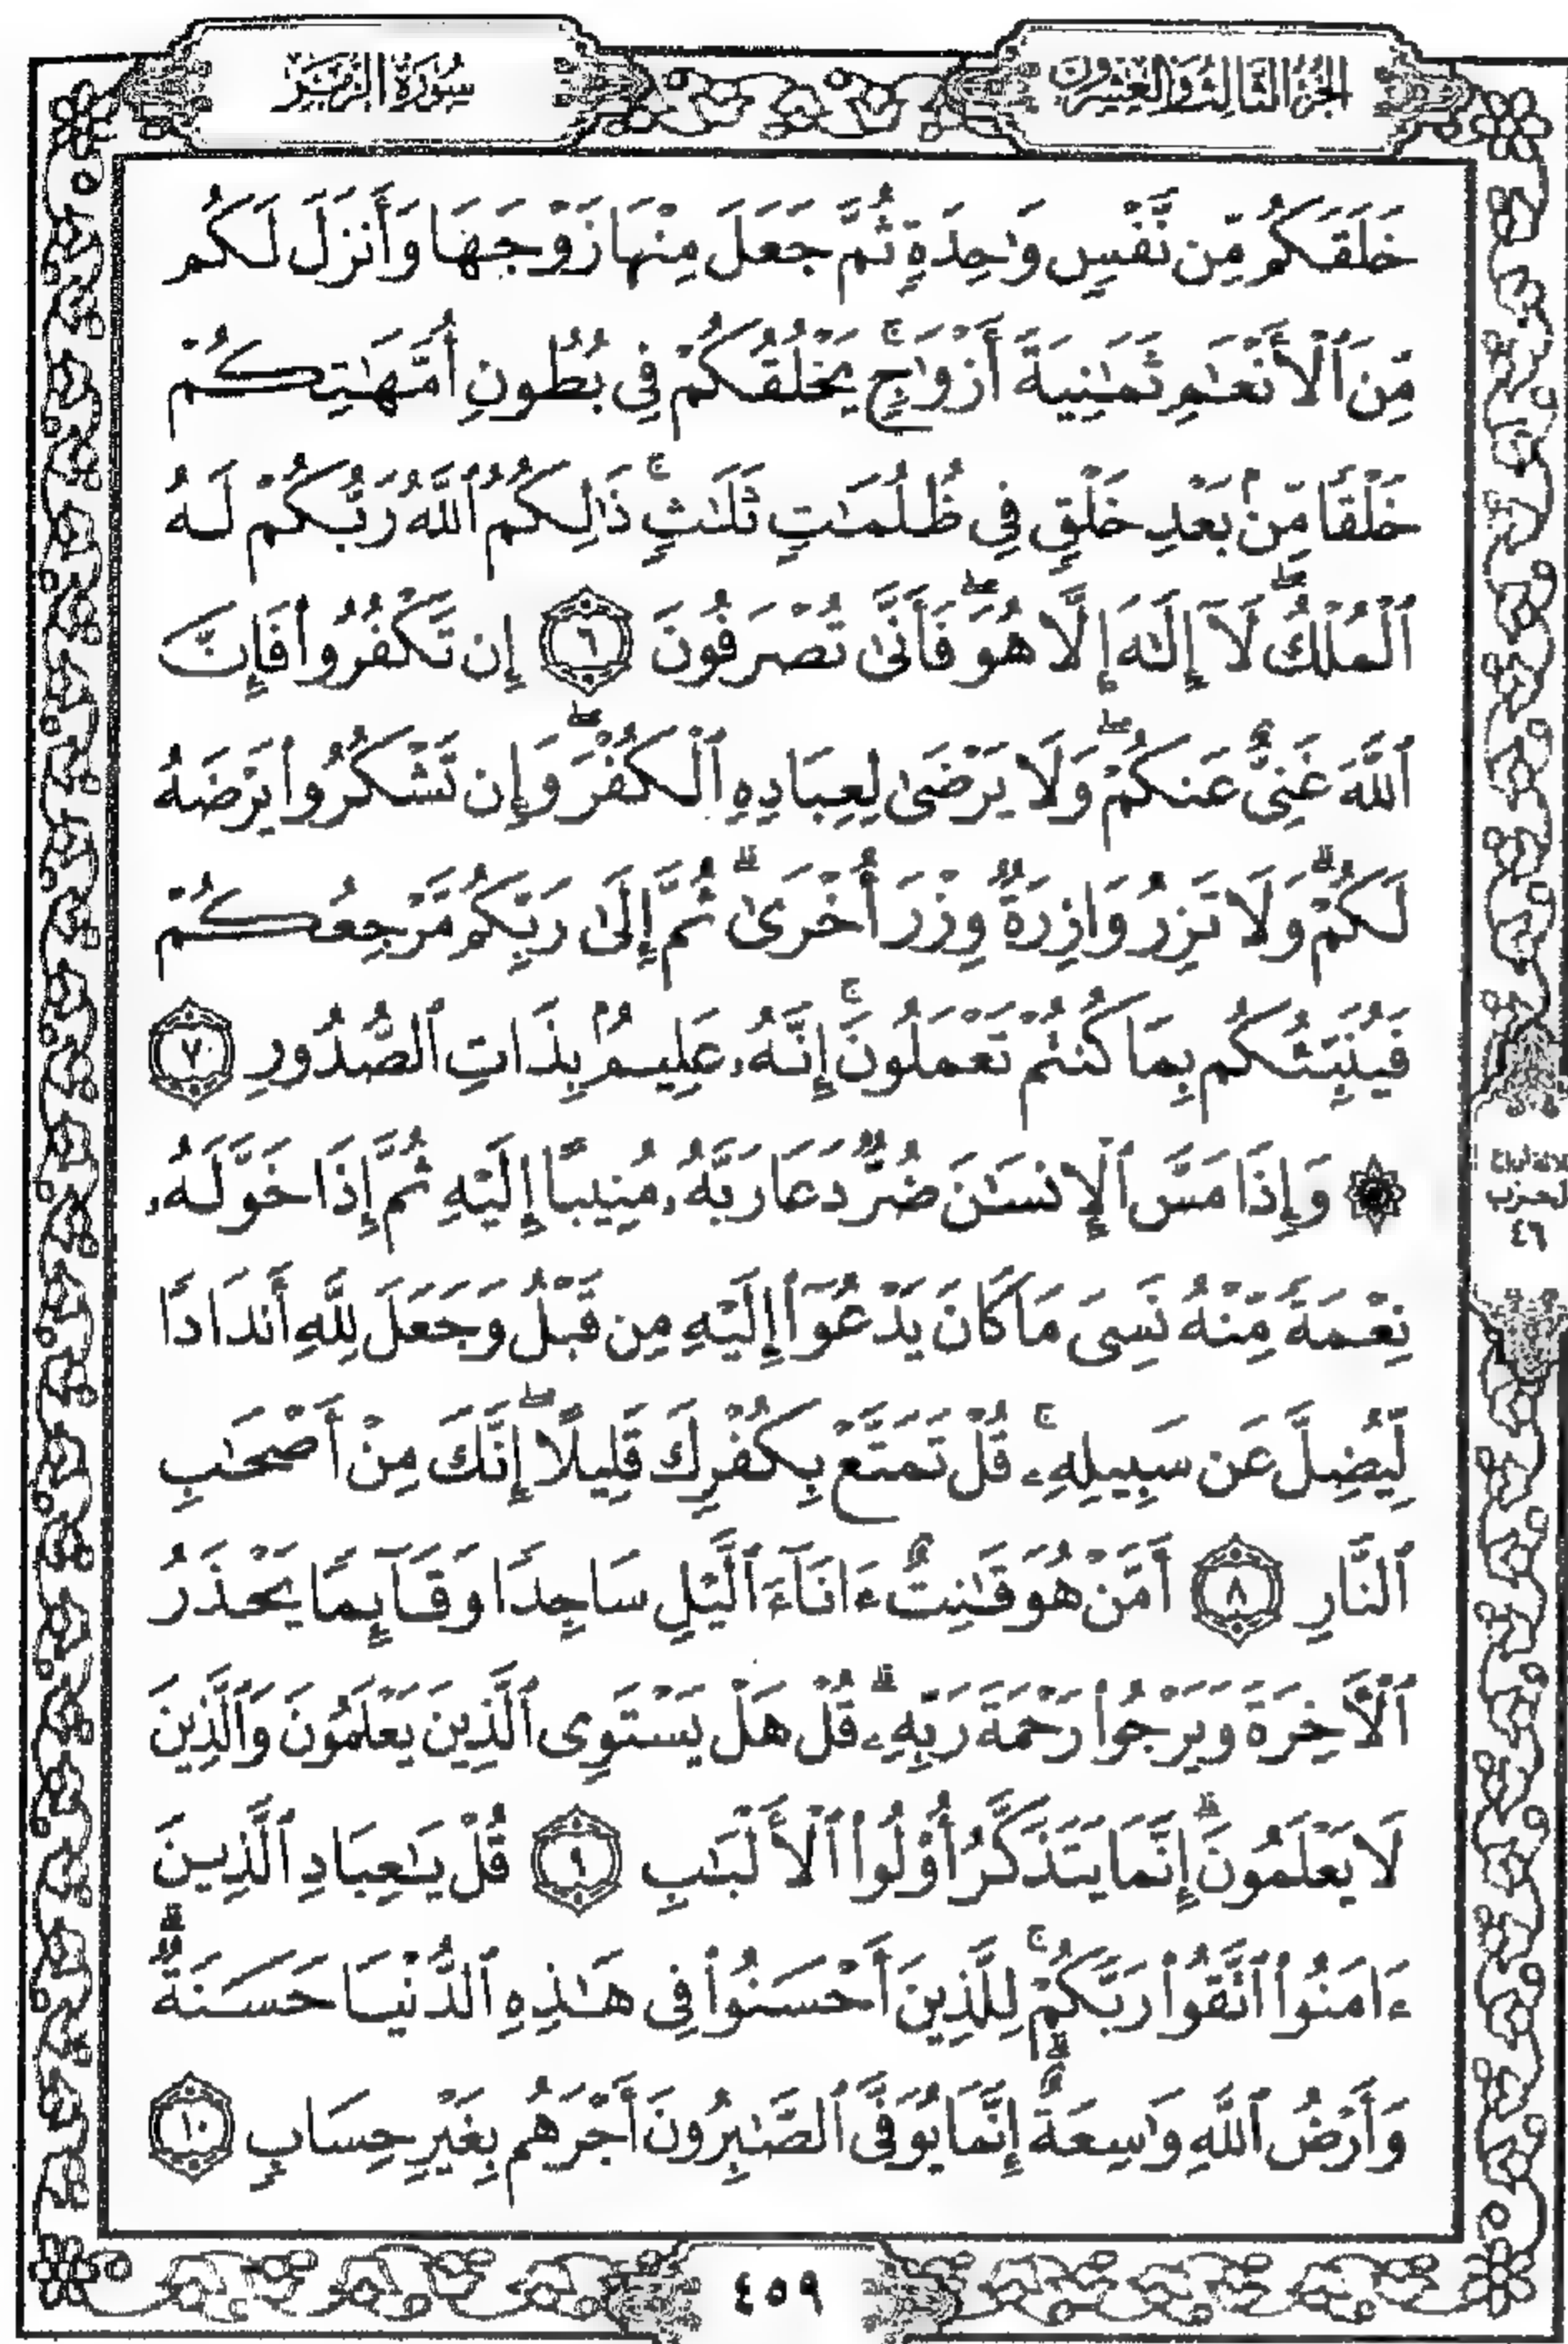 الجزء الثالث والعشرون
سورة الزمر
خَلَقَكُم مِّن نَّفْسٍ وَٰحِدَةٍ ثُمَّ جَعَلَ مِنْهَا زَوْجَهَا وَأَنزَلَ لَكُم
مِّنَ ٱلْأَنْعَٰمِ ثَمَٰنِيَةَ أَزْوَٰجٍ ۚ يَخْلُقُكُمْ فِى بُطُونِ أُمَّهَٰتِكُمْ
خَلْقًا مِّنۢ بَعْدِ خَلْقٍ فِى ظُلُمَٰتٍ ثَلَٰثٍ ۚ ذَٰلِكُمُ ٱللَّهُ رَبُّكُمْ لَهُ
ٱلْمُلْكُ ۖ لَآ إِلَٰهَ إِلَّا هُوَ ۖ فَأَنَّىٰ تُصْرَفُونَ ٦ إِن تَكْفُرُوا۟ فَإِنَّ
ٱللَّهَ غَنِىٌّ عَنكُمْ ۖ وَلَا يَرْضَىٰ لِعِبَادِهِ ٱلْكُفْرَ ۖ وَإِن تَشْكُرُوا۟ يَرْضَهُ
لَكُمْ ۗ وَلَا تَزِرُ وَازِرَةٌ وِزْرَ أُخْرَىٰ ۗ ثُمَّ إِلَىٰ رَبِّكُم مَّرْجِعُكُمْ
فَيُنَبِّئُكُم بِمَا كُنتُمْ تَعْمَلُونَ ۚ إِنَّهُۥ عَلِيمٌۢ بِذَاتِ ٱلصُّدُورِ ٧
۞ وَإِذَا مَسَّ ٱلْإِنسَٰنَ ضُرٌّ دَعَا رَبَّهُۥ مُنِيبًا إِلَيْهِ ثُمَّ إِذَا خَوَّلَهُۥ
نِعْمَةً مِّنْهُ نَسِىَ مَا كَانَ يَدْعُوٓا۟ إِلَيْهِ مِن قَبْلُ وَجَعَلَ لِلَّهِ أَندَادًا
لِّيُضِلَّ عَن سَبِيلِهِۦ ۚ قُلْ تَمَتَّعْ بِكُفْرِكَ قَلِيلًا ۖ إِنَّكَ مِنْ أَصْحَٰبِ
ٱلنَّارِ ٨ أَمَّنْ هُوَ قَٰنِتٌ ءَانَآءَ ٱلَّيْلِ سَاجِدًا وَقَآئِمًا يَحْذَرُ
ٱلْءَاخِرَةَ وَيَرْجُوا۟ رَحْمَةَ رَبِّهِۦ ۗ قُلْ هَلْ يَسْتَوِى ٱلَّذِينَ يَعْلَمُونَ وَٱلَّذِينَ
لَا يَعْلَمُونَ ۗ إِنَّمَا يَتَذَكَّرُ أُو۟لُوا۟ ٱلْأَلْبَٰبِ ٩ قُلْ يَٰعِبَادِ ٱلَّذِينَ
ءَامَنُوا۟ ٱتَّقُوا۟ رَبَّكُمْ ۚ لِلَّذِينَ أَحْسَنُوا۟ فِى هَٰذِهِ ٱلدُّنْيَا حَسَنَةٌ ۗ
وَأَرْضُ ٱللَّهِ وَٰسِعَةٌ ۗ إِنَّمَا يُوَفَّى ٱلصَّٰبِرُونَ أَجْرَهُم بِغَيْرِ حِسَابٍ ١٠
٤٦
٤٥٩